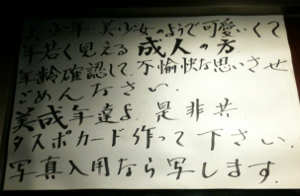 美少年・美少女のようで可愛いくて
年若く見える成人の方.
年齢確認して.不愉快な思いさせ
ごめんなさい.
美成年達よ.是非共
タスポカード作って下さい.
写真入用なら写します.